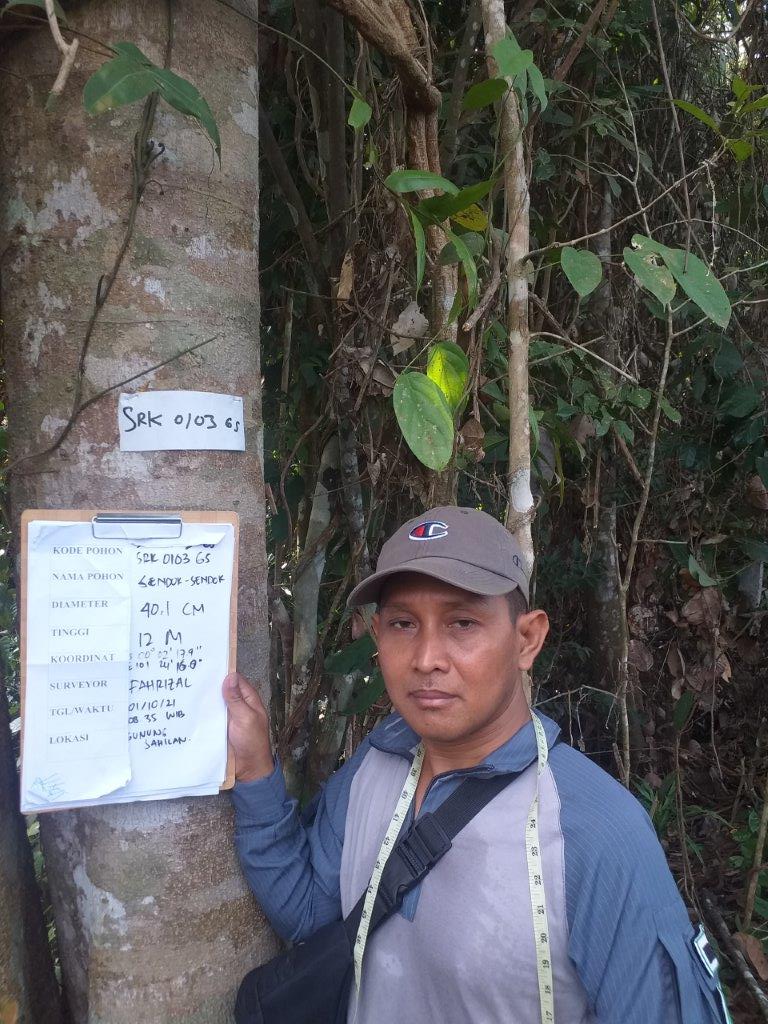 SRK 0103 GS
KODE POHON SRK 0103 GS
NAMA POHON SENDOK-SENDOK
DIAMETER 40.1 CM
TINGGI 12 M
KOORDINAT S 00° 02' 17.9"
E 101° 21'
SURVEYOR FAHRIZAL
TGL/WAKTU 01/10/21
08.35 WIB
LOKASI GUNUNG
SAHILAN.